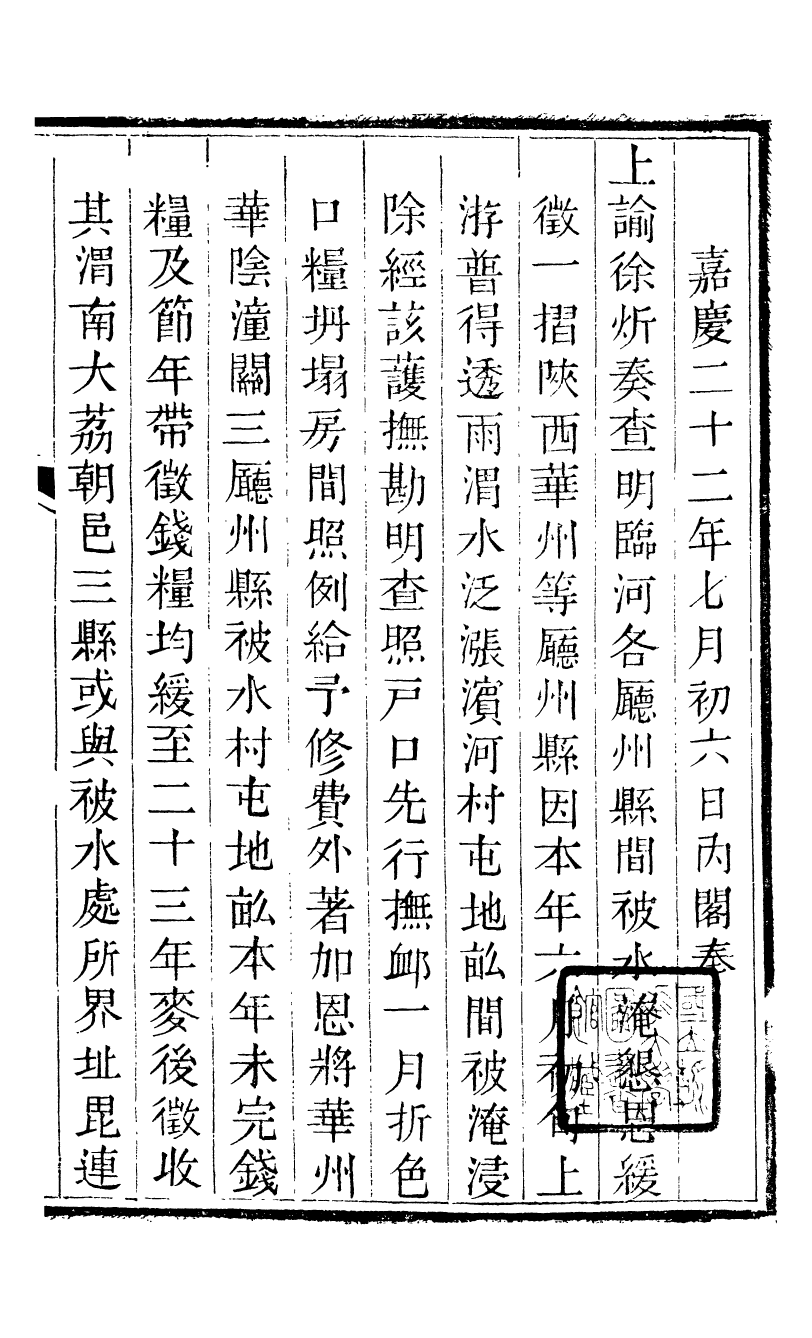 嘉慶二十二年七月初六日內閣奉
上諭徐炘奏查明臨河各廳州縣間被水淹懇恩緩
徵一摺陝西華州等廳州縣因本年六月初旬上
游普得透雨渭水泛漲濱河村屯地畝間被淹浸
除經該護撫勘明查照戸口先行撫䘏一月折色
口糧坍塌房間照例給予修費外著加恩將華州
華陰潼關三廳州縣被水村屯地畝本年未完錢
糧及節年帶徵錢糧均緩至二十三年麥後徵收
其渭南大荔朝邑三縣或與被水處所界址毘連